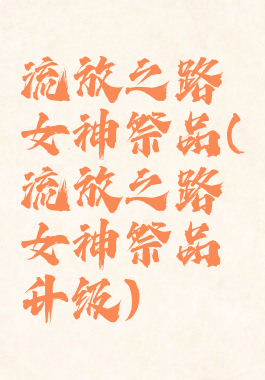 流放之路
女神祭品(
流放之路
女神祭品
升级)